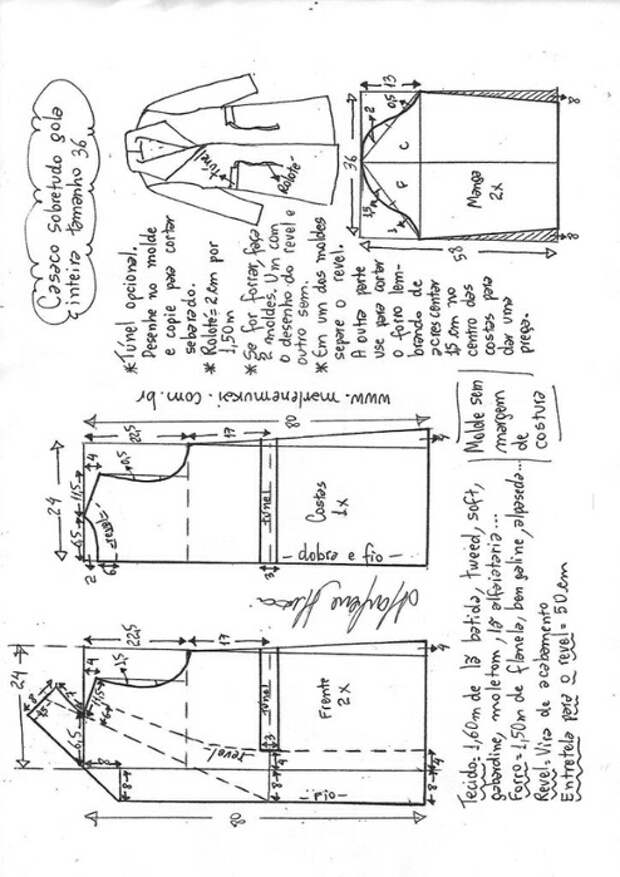 Casaco Sobretudo gola
inteira tamanho 36
*Túnel opcional.
Desenhe no molde
e copie para cortar
separado.
*Roloté=2cm por
1,50m
*Se for forrar, faça
2 moldes. Um com
o desenho do revel e
outro sem.
*Em um dos moldes
separe o revel.
A outra parte
use para cortar
o forro lem-
brando de
acrescentar
15 cm no
centro das
costas para
dar uma
prega.
túnel
Roloté
13
36
2
0,5
C
F
1,5
1
Manga
2x
58
8
8
www.marlenemukai.com.br
Molde sem
margem
de
costura
80
22,5
17
24
4
11,5
6,5
0,5
revel
2
6
túnel
3
Costas
1x
fio e dobra
4
Marlene Mukai
24
22,5
17
8
7
4
1,5
11,5
6,5
8
8
revel
túnel
3
Frente
2x
4
4
8
4
fio
80
Tecido: 1,60m de lã batida, tweed, soft,
gabardine, moletom, lã alfaiataria...
Forro=1,50m de flanela, bengaline, alpaseda...
Revel=Vira de acabamento
Entretela para o revel=50cm